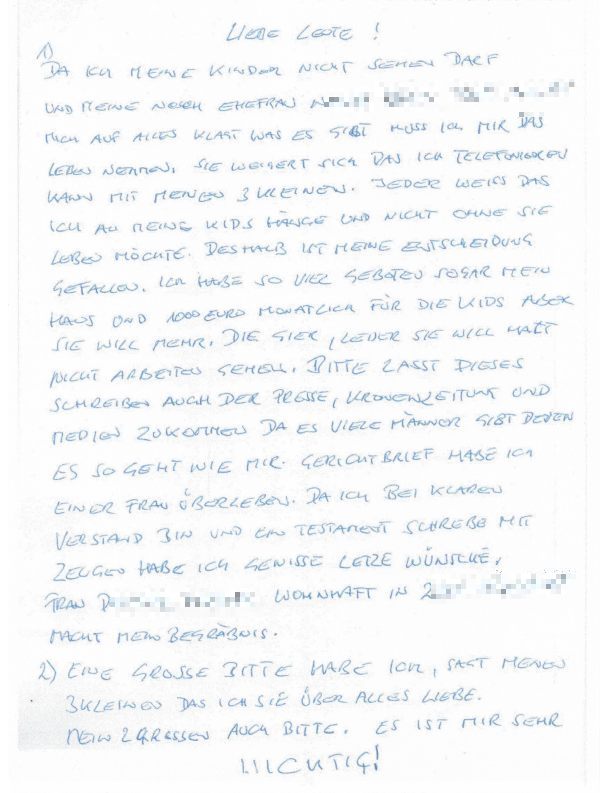 LIEBE LEUTE!
1)
DA ICH MEINE KINDER NICHT SEHEN DARF
UND MEINE NOCH EHEFRAU
MICH AUF ALLES KLAGT WAS ES GIBT MUSS ICH MIR DAS
LEBEN NEHMEN. SIE WEIGERT SICH DAS ICH TELEFONIEREN
KANN MIT MEINEN 3 KLEINEN. JEDER WEISS DAS
ICH AN MEINE KIDS HÄNGE UND NICHT OHNE SIE
LEBEN MÖCHTE. DESHALB IST MEINE ENTSCHEIDUNG
GEFALLEN. ICH HABE SO VIEL GEBOTEN SOGAR MEIN
HAUS UND 1000 EURO MONATLICH FÜR DIE KIDS ABER
SIE WILL MEHR. DIE GIER, LEIDER SIE WILL HALT
NICHT ARBEITEN GEHEN. BITTE LASST DIESES
SCHREIBEN AUCH DER PRESSE, KRONENZEITUNG UND
MEDIEN ZUKOMMEN DA ES VIELE MÄNNER GIBT DENEN
ES SO GEHT WIE MIR. GERICHTBRIEF HABE ICH
EINER FRAU ÜBERGEBEN. DA ICH BEI KLAREN
VERSTAND BIN UND EIN TESTAMENT SCHREIBE MIT
ZEUGEN HABE ICH GEWISSE LETZE WÜNSCHE.
FRAU D WOHNHAFT IN 2
MACHT MEIN BEGRÄBNIS.
2) EINE GROSSE BITTE HABE ICH, SAGT MEINEN
3 KLEINEN DAS ICH SIE ÜBER ALLES LIEBE.
MEIN 2 GROSSEN AUCH BITTE. ES IST MIR SEHR
WICHTIG!